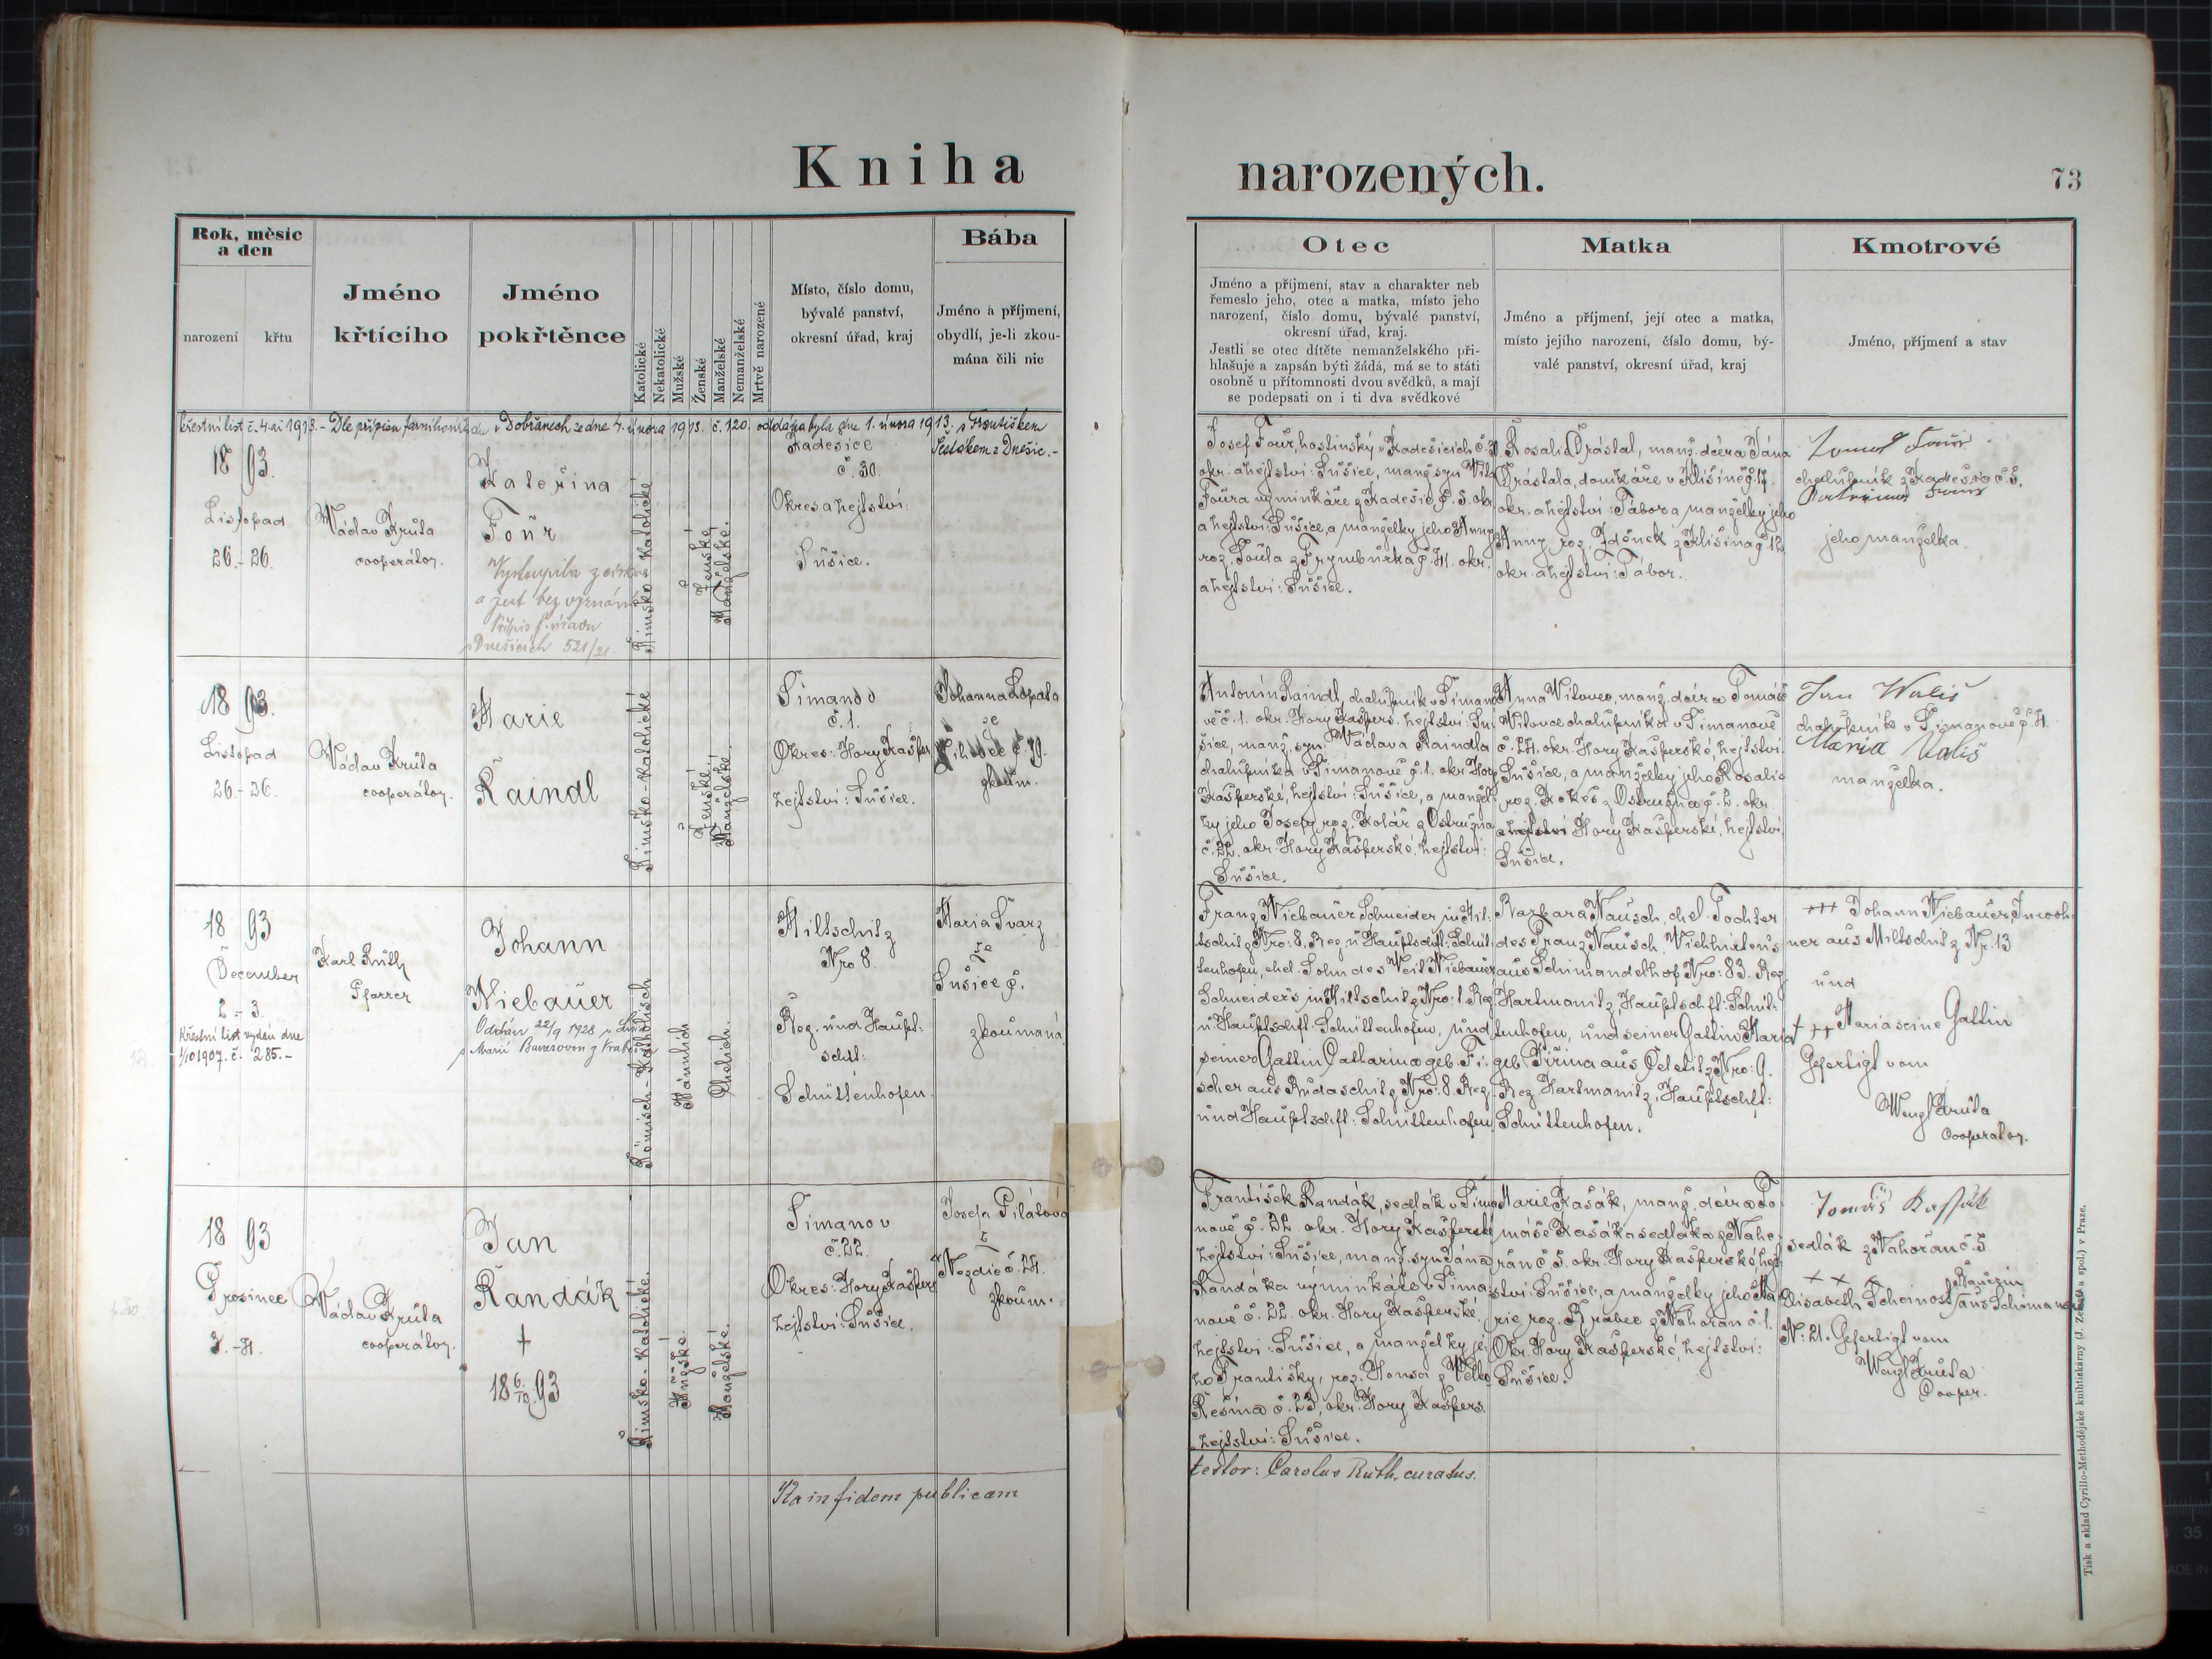 Kniha narozených.
73
Rok, měsíc
a den
narození
křtu
Jméno
křtícího
Jméno
pokřtěnce
Katolické
Nekatolické
Mužské
Ženské
Manželské
Nemanželské
Mrtvě narozené
Místo, číslo domu,
bývalé panství,
okresní úřad, kraj
Bába
Jméno a příjmení,
obydlí, je-li zkou-
mána čili nic
Otec
Jméno a příjmení, stav a charakter neb
řemeslo jeho, otec a matka, místo jeho
narození, číslo domu, bývalé panství,
okresní úřad, kraj.
Jestli se otec dítěte nemanželského při-
hlašuje a zapsán býti žádá, má se to státi
osobně u přítomnosti dvou svědků, a mají
se podepsati on i ti dva svědkové
Matka
Jméno a příjmení, její otec a matka,
místo jejího narození, číslo domu, bý-
valé panství, okresní úřad, kraj
Kmotrové
Jméno, příjmení a stav
křestní list č. 4 ai 1913. - Dle přípisu farního úřadu v Dobřanech ze dne 4. února 1913. č. 120. oddána byla dne 1. února 1913. s Františkem
Šestákem z Dnešic. -
18 93.
Listopad
26. - 26.
Václav Krůta
cooperátor.
Kateřina
Touř
Vystoupila z církve
a jest bez vyznání
Přípis f. úřadu
v Dnešicích 521/21.
Římsko-Katolické
Ženské
Manželské.
Kadešice
č. 30.
Okres a hejtství:
Sušice.
Josef Touř, hostinský v Kadešicích č. 30.
okr. a hejtství: Sušice, manž. syn Víta
Toura výminkáře z Kadešic č. 5. okr.
a hejtství: Sušice, a manželky jeho Anny
roz. Soula z Frymburka č. 41. okr.
a hejtství: Sušice.
Rosalia Drástal, manž. dcera Jana
Drástala, domkáře v Klišíně č. 17.
okr. a hejtství: Tábor a manželky jeho
Anny roz. Zdeněk z Klišína č. 12.
okr. a hejtství: Tábor.
Tomáš Touř
chalupník z Kadešic č. 5.
jeho manželka.
18 93.
Listopad
26. - 26.
Václav Krůta
cooperátor.
Marie
Raindl
Římsko-Katolické
Ženské
Manželské.
Simanov
č. 1.
Okres: Hory Kašper
hejtství: Sušice.
Johanna Lopata
ze
č. 79.
zkoum.
Antonín Raindl, chalupník v Simano-
vě č. 1. okr. Hory Kašpers. hejtství: Su-
šice, manž. syn Václava Raindla
chalupníka v Simanově č. 1. okr. Hory
Kašperské, hejtství: Sušice, a manžel-
ky jeho Josefy roz. Kolář z Ostružna
č. 22. okr. Hory Kašperské, hejtství:
Sušice.
Anna Witovec, manž. dcera Tomáše
Witovce chalupníka v Simanově
č. 24. okr. Hory Kašperské, hejtství:
Sušice, a manželky jeho Rosalie
roz. Kokeš z Ostružna č. 2. okr.
a hejtství Hory Kašperské, hejtství:
Sušice.
Jan Wališ
chalupník v Simanově č. 4.
Maria Vališ
manželka.
18 93
December
2. - 3.
Křestní list vydán dne
1/10 1907. č. 285. -
Karl Rŭth
Pfarrer
Johann
Niebauer
Oddán 22/9 1928 v
s Marií Bauerovou z
Römisch-Katholisch
Männlich
Ehelich.
Miltschitz
Nro 8.
Bez. und Haupt-
schft:
Schüttenhofen
Maria Švarz
ze
Sušice č.
zkoumaná
Franz Niebauer Schneider in Mil-
tschitz Nro: 8. Bez. u Hauptschft. Schüt-
tenhofen, ehel. Sohn des Veit Niebauer
Schneiders in Miltschitz Nro: 1. Bez.
u. Hauptschft. Schüttenhofen, und
seiner Gattin Catharina geb. Fi-
scher aus Rudaschitz Nro: 8. Bez.
und Hauptschft: Schüttenhofen
Barbara Nausch, ehel. Tochter
des Franz Nausch, Viehhirten's
aus Schimandelhof Nro: 83. Bez.
Hartmanitz, Hauptschft: Schüt-
tenhofen, und seiner Gattin Maria
geb. Jiřina aus Ždeletitz Nro: 9.
Bez. Hartmanitz, Hauptschft:
Schüttenhofen.
+++ Johann Niebauer, Inwoh-
ner aus Miltschitz Nr. 13
und
+++ Maria seine Gattin
Gefertigt vom
Wenzl Krŭta
Cooperator.
18 93
Prosinec
3. - 4.
Václav Krůta
cooperátor.
Jan
Randák
†
18 6/12 93
Římsko-Katolické.
Mužské.
Manželské.
Simanov
č. 22.
Okres: Hory Kašpers
hejtství: Sušice.
Josefa Pilátová
z
Nezdic č. 24.
zkoum.
František Randák, sedlák v Sima-
nově č. 22. okr. Hory Kašperské
hejtství: Sušice, manž. syn Jana
Randáka výminkáře v Sima-
nově č. 22. okr. Hory Kašperské.
hejtství: Sušice, a manželky je-
ho Františky, roz. Honsa z Velké
Řešína č. 23, okr. Hory Kašpers.
hejtství: Sušice.
Marie Kašák, manž. dcera To-
máše Kašáka sedláka z Naho-
řan č 5. okr. Hory Kašperské, hejt-
ství: Sušice, a manželky jeho Ma-
rie roz. Hrabec z Nahořan č. 1.
Okr. Hory Kašperské, hejtství:
Sušice.
Tomáš Kaššák
sedlák z Nahořan č. 5
x x x Bäuerin
Elisabeth Scheinost aus Schimanau
N: 21. Gefertigt vom
Wenzl Krŭta
Cooper.
Ita in fidem publicam
testor: Carolus Rŭth, curatus.
Tisk a sklad Cyrillo-Methodějské knihtiskárny (J. Zeman a spol.) v Praze.